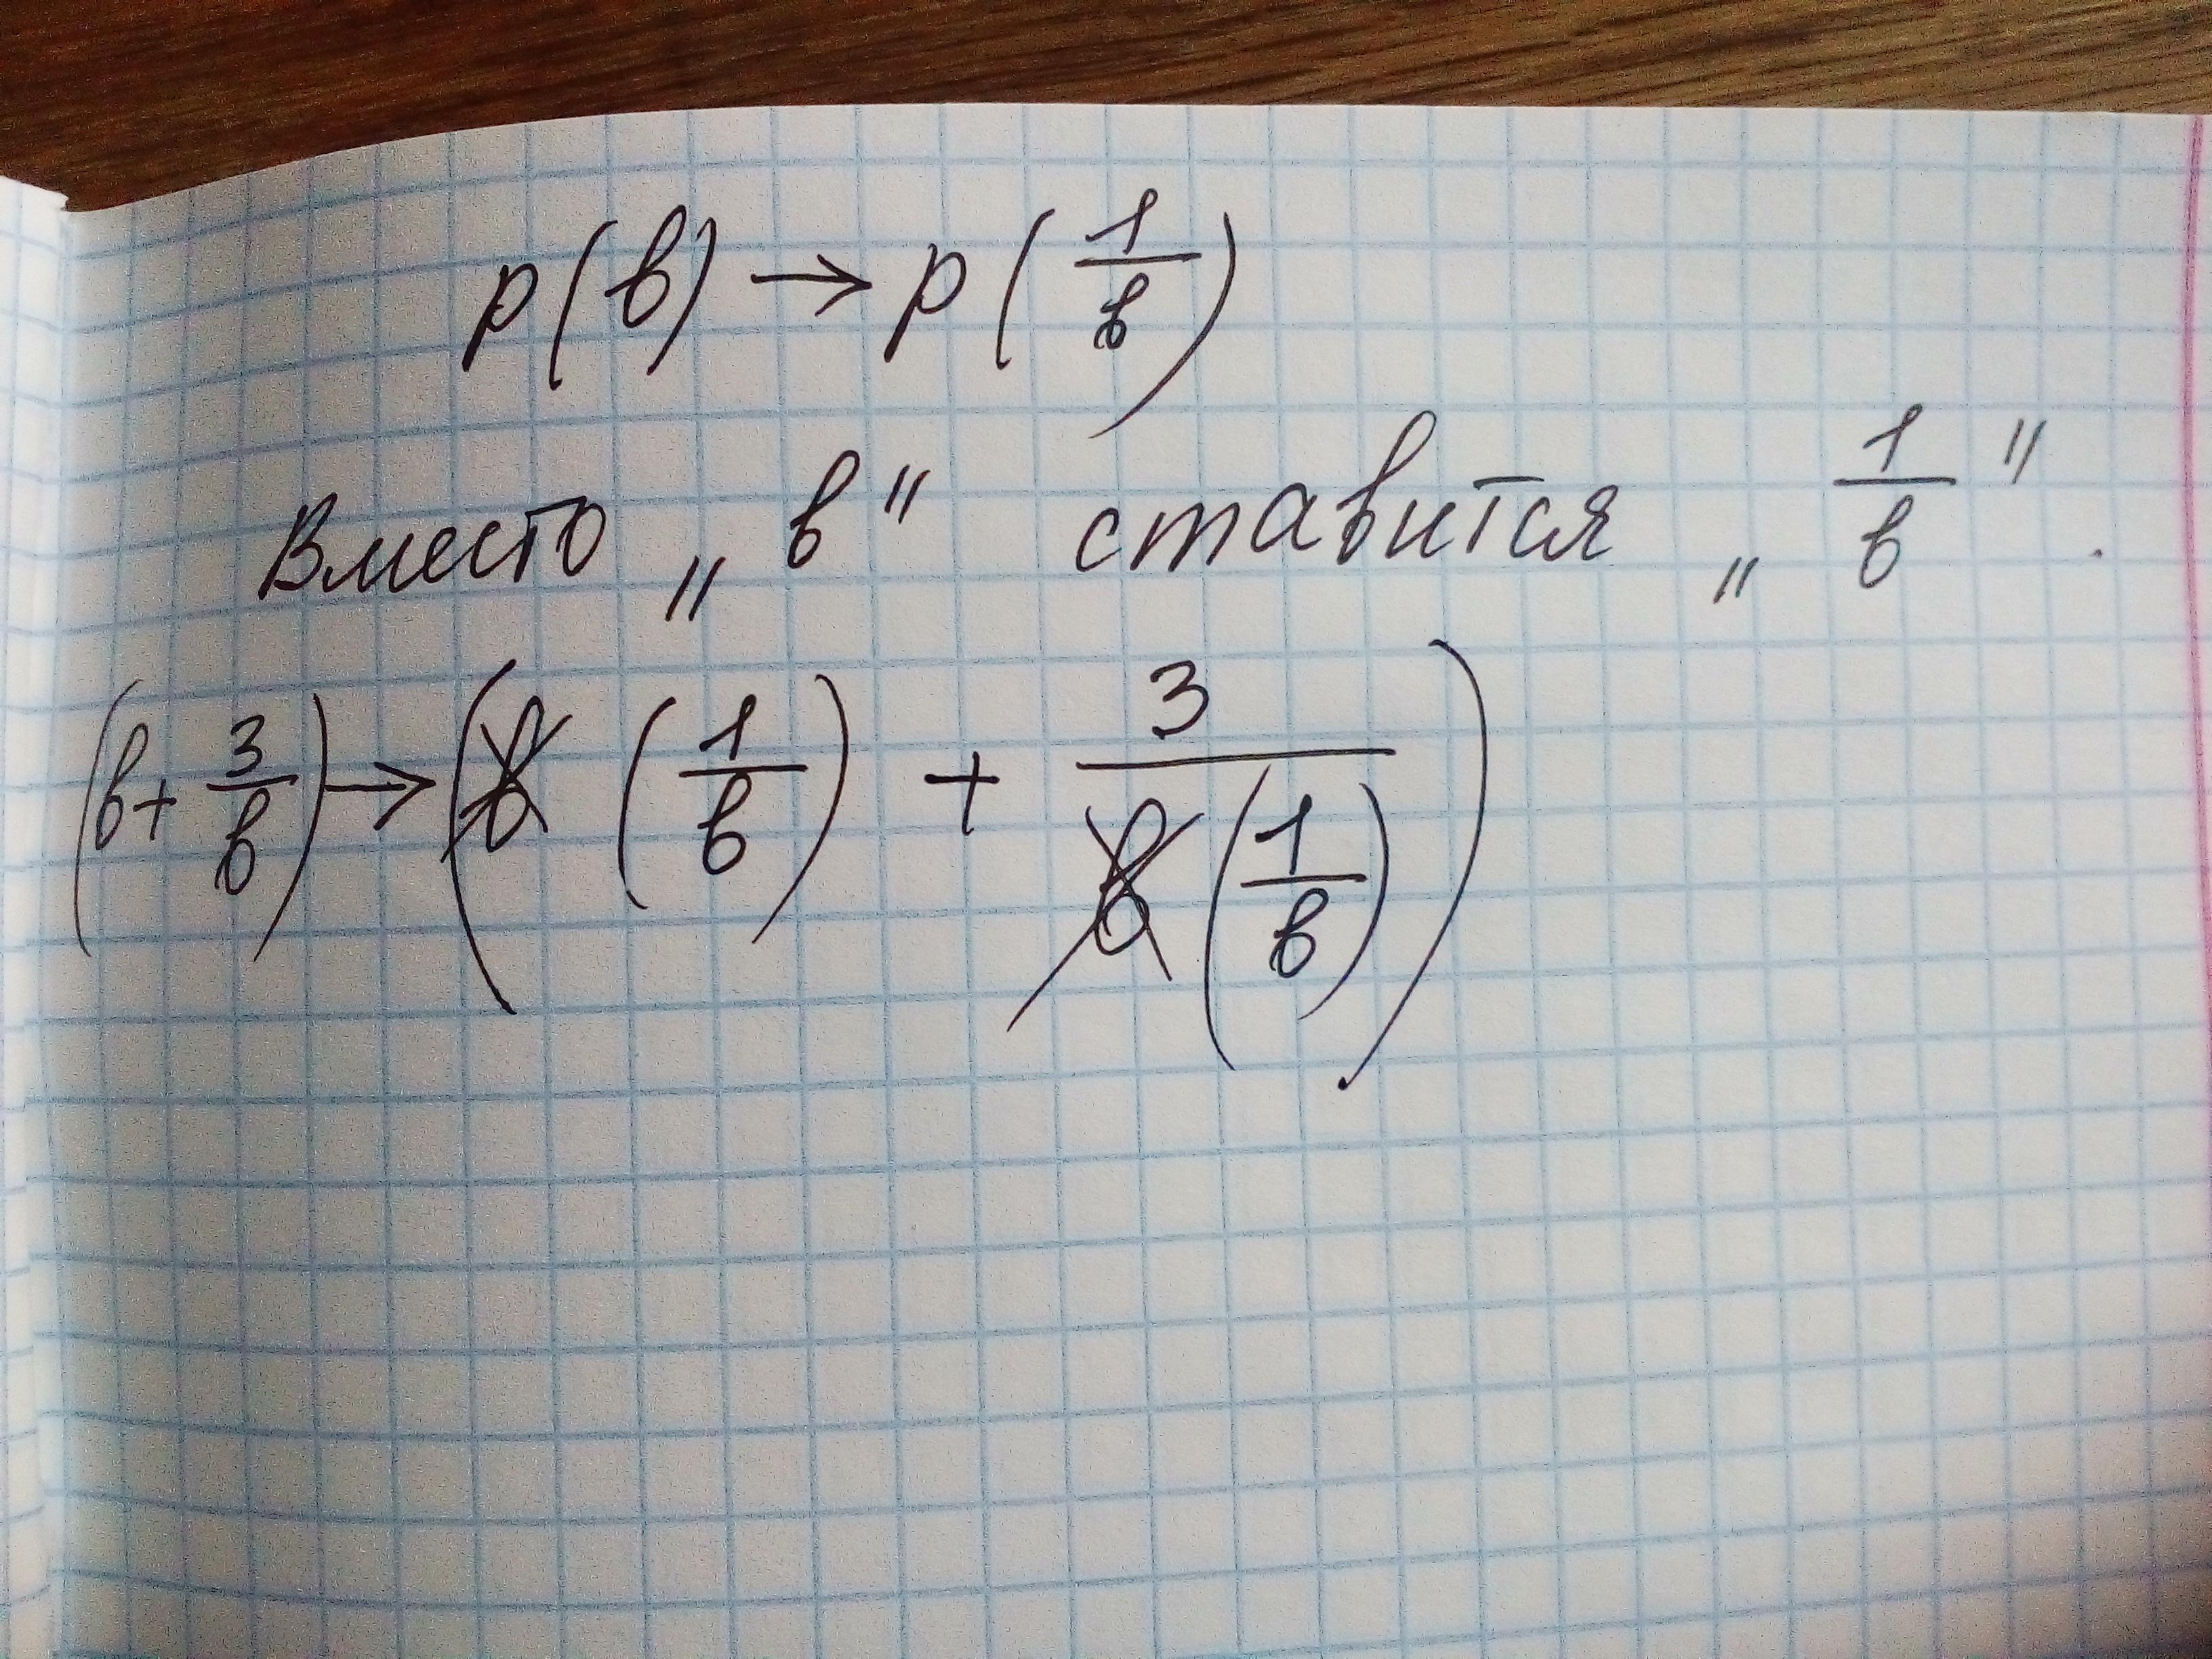 p(b) → p(1/b)
Вместо „b" ставится „1/b".
(b + 3/b) → (b (1/b) + 3/(b (1/b)))